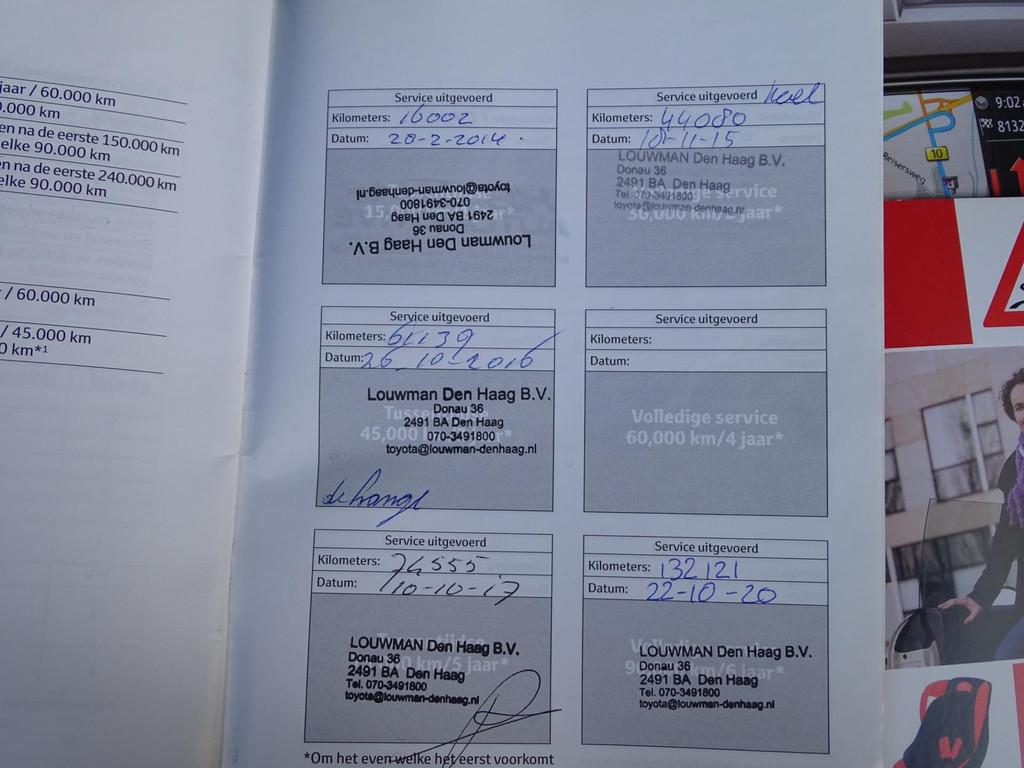 jaar / 60.000 km
0.000 km
en na de eerste 150.000 km
elke 90.000 km
en na de eerste 240.000 km
elke 90.000 km
/ 60.000 km
/ 45.000 km
0 km*1
Service uitgevoerd
Kilometers: 16002
Datum: 28-2-2014
Louwman Den Haag B.V.
Donau 36
2491 BA Den Haag
070-3491800
toyota@louwman-denhaag.nl
Service uitgevoerd
Kilometers: 44080
Datum: 10-11-15
LOUWMAN Den Haag B.V.
Donau 36
2491 BA Den Haag
Tel. 070-3491800
toyota@louwman-denhaag.nl
service
30,000 km/2 jaar*
Service uitgevoerd
Kilometers: 61139
Datum: 26-10-2016
Louwman Den Haag B.V.
Donau 36
2491 BA Den Haag
070-3491800
toyota@louwman-denhaag.nl
45,000
Service uitgevoerd
Kilometers:
Datum:
Volledige service
60,000 km/4 jaar*
Service uitgevoerd
Kilometers: 74555
Datum: 10-10-17
LOUWMAN Den Haag B.V.
Donau 36
2491 BA Den Haag
Tel. 070-3491800
toyota@louwman-denhaag.nl
km/5 jaar*
Service uitgevoerd
Kilometers: 132121
Datum: 22-10-20
LOUWMAN Den Haag B.V.
Donau 36
2491 BA Den Haag
Tel. 070-3491800
toyota@louwman-denhaag.nl
km/6 jaar*
*Om het even welke het eerst voorkomt
9:02
8132
10
Reisersweg